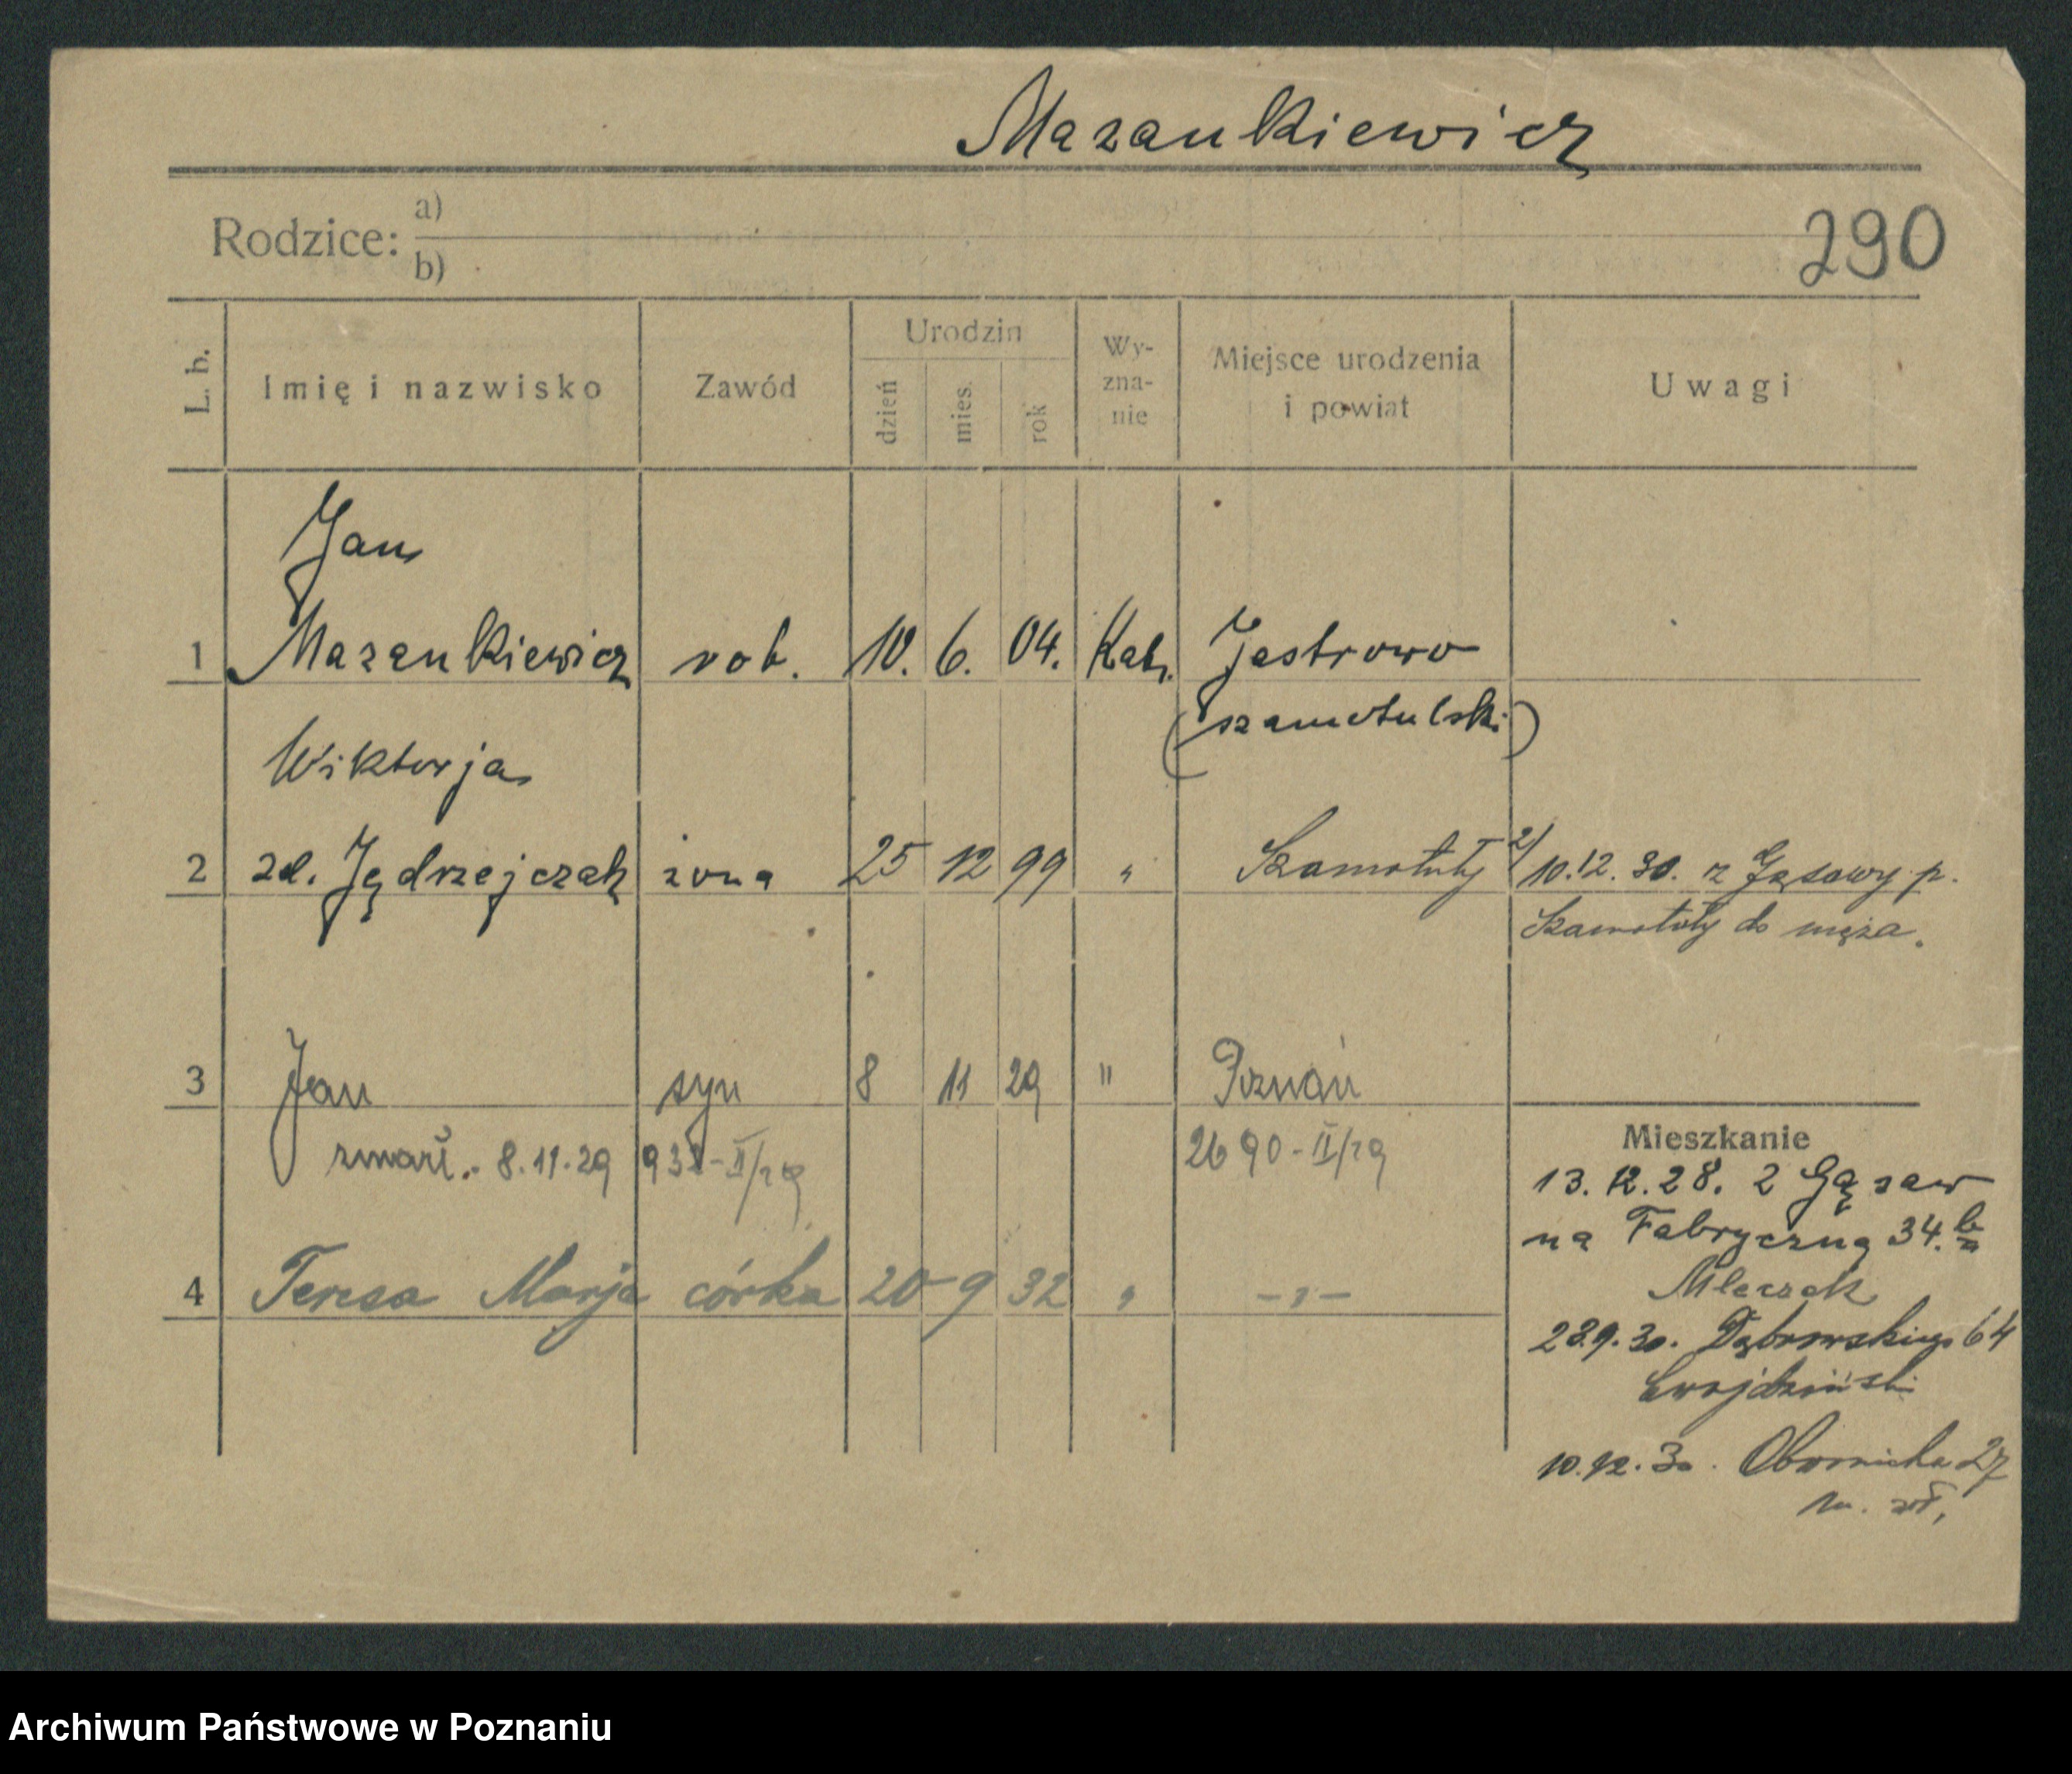 Mazankiewicz
Rodzice: a)
b)
290
L. b. Imię i nazwisko Zawód Urodzin dzień mies. rok Wy-zna-nie Miejsce urodzenia i powiat Uwagi
Jan
1 Mazankiewicz rob. 10. 6. 04. Kat. Jastrowo
(szamotulski)
Wiktorja
2 zd. Jędrzejczak żona 25 12 99 " Szamotuły 2/ 10.12.30. z Gąsawy p.
Szamotuły do męża.
3 Jan syn 8 11 29 " Poznań
zmarł. 8.11.29 932-II/29 2690-II/29
4 Teresa Marja córka 20 9 32 " -"-
Mieszkanie
13.12.28. z Gąsaw
na Fabryczną 34.
Mleczak
28.9.30. Dąbrowskiego 64
10.12.30. Obornicka 27
Archiwum Państwowe w Poznaniu